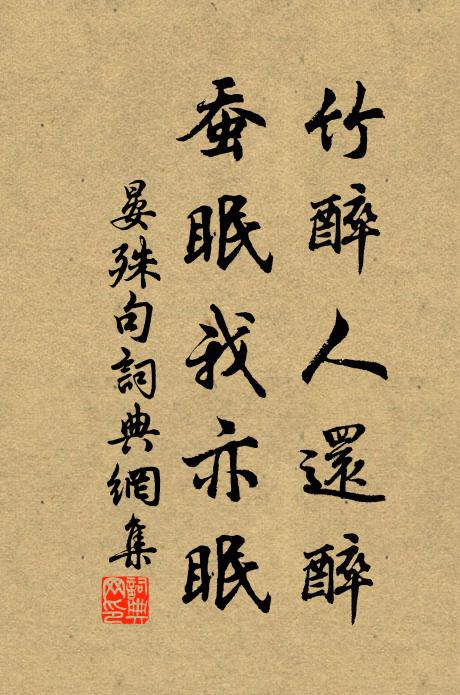 竹醉人還醉
蚕眠我亦眠
晏殊句詞典網集
詞典
网印